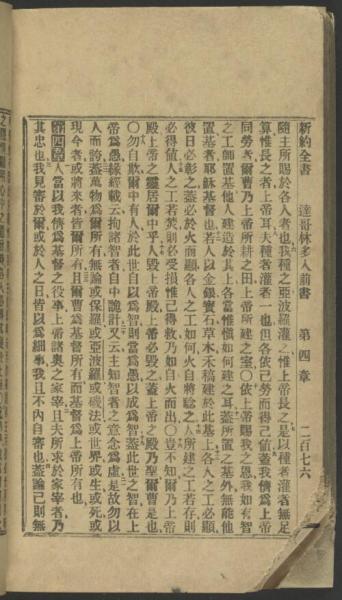 新約全書　達哥林多人前書　第四章　二百七六
隨主所賜於各人者也我種之亞波羅灌之惟上帝長之是以種者灌者無足
算惟長之者上帝耳夫種者灌者一也但各依己勞而得己值蓋我儕為上帝
同勞者爾曹乃上帝所耕之田上帝所建之室〇依上帝賜我之恩我如有智
之工師置基他人建造於其上各當惟愼如何建之耳蓋所置之基外無能他
置基者耶穌基督也若人以金銀寶石草木禾稿建於此基上各人之工必顯
彼日必彰之蓋必於火而顯各人之工如何火自將驗之人所建之工若存則
必得值人之工若焚則必受損惟己得救乃如自火而出〇豈不知爾乃上帝
殿上帝之靈居爾中乎人毀上帝殿上帝必毀之蓋上帝之殿乃聖爾曹是也
〇勿自欺爾中有人於此世自以為智則當為愚以成為智蓋此世之智在上
帝為愚緣經載云拘諸智者自中詭計又云主知智者之意念為虛是故勿以
人而誇蓋萬物為爾所有無論或保羅或亞波羅或磯法或世界或生或死或
現今者或將來者皆爾所有且爾曹為基督所有而基督為上帝所有也
第四章人當以我儕為基督之役事上帝諸奧之家宰且夫所求於家宰者乃
其忠也我見審於爾或於人之日皆以為細事我且不內自審也蓋論己則無